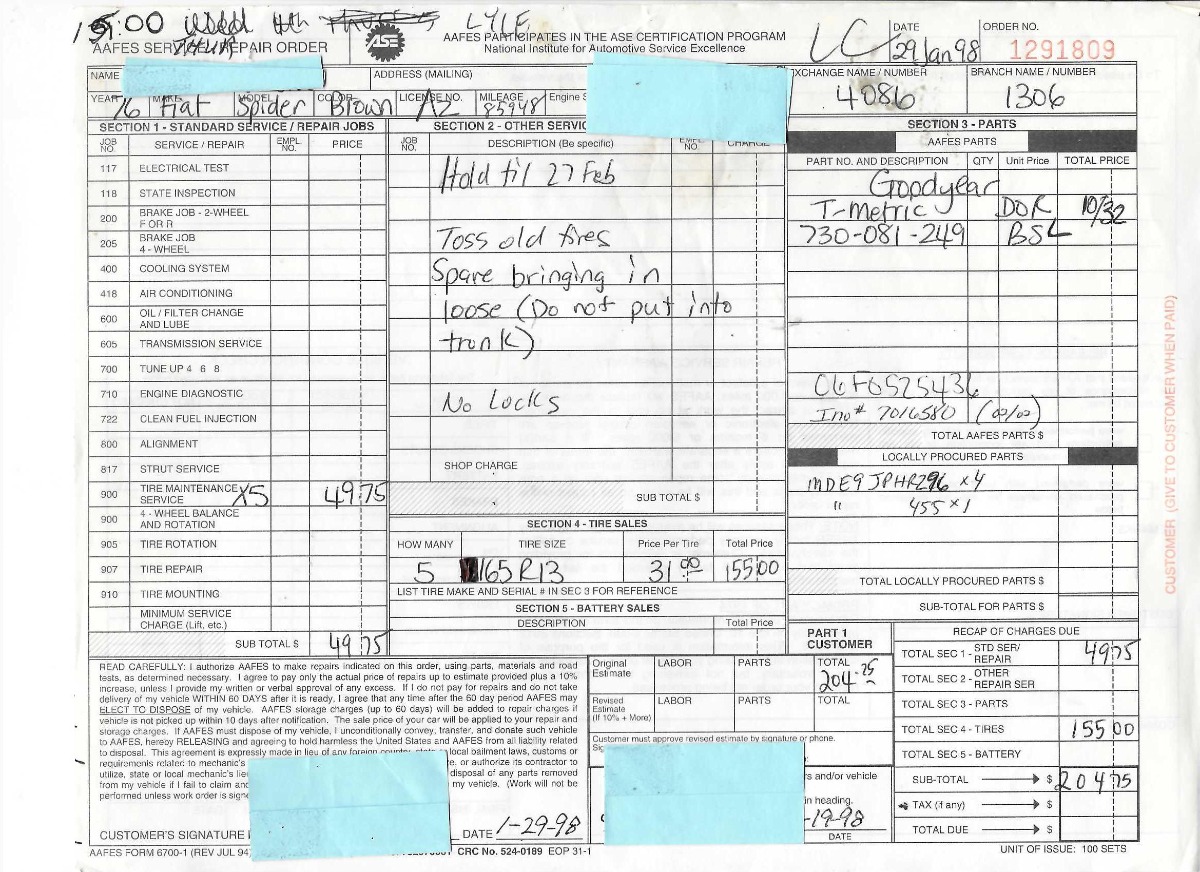 15:00 Wed 4th
LYLE
AAFES SERVICE/REPAIR ORDER
THUR
ASE
AAFES PARTICIPATES IN THE ASE CERTIFICATION PROGRAM
National Institute for Automotive Service Excellence
LC
DATE
29 Jan 98
ORDER NO.
1291809
NAME
ADDRESS (MAILING)
EXCHANGE NAME / NUMBER
4086
BRANCH NAME / NUMBER
1306
YEAR MAKE MODEL COLOR LICENSE NO. MILEAGE Engine S
76 Fiat Spider Brown AZ 85948
SECTION 1 - STANDARD SERVICE / REPAIR JOBS
JOB NO. SERVICE / REPAIR EMPL. NO. PRICE
117 ELECTRICAL TEST
118 STATE INSPECTION
200 BRAKE JOB - 2-WHEEL
F OR R
205 BRAKE JOB
4 - WHEEL
400 COOLING SYSTEM
418 AIR CONDITIONING
600 OIL / FILTER CHANGE
AND LUBE
605 TRANSMISSION SERVICE
700 TUNE UP 4 6 8
710 ENGINE DIAGNOSTIC
722 CLEAN FUEL INJECTION
800 ALIGNMENT
817 STRUT SERVICE
900 TIRE MAINTENANCE
SERVICE X5 49.75
900 4 - WHEEL BALANCE
AND ROTATION
905 TIRE ROTATION
907 TIRE REPAIR
910 TIRE MOUNTING
MINIMUM SERVICE
CHARGE (Lift, etc.)
SUB TOTAL $ 49 75
SECTION 2 - OTHER SERVIC
JOB NO. DESCRIPTION (Be specific) EMPL. NO. CHARGE
Hold til 27 Feb
Toss old tires
Spare bringing in
loose (Do not put into
trunk)
No Locks
SHOP CHARGE
SUB TOTAL $
SECTION 4 - TIRE SALES
HOW MANY TIRE SIZE Price Per Tire Total Price
5 165R13 31 00 155 00
LIST TIRE MAKE AND SERIAL # IN SEC 3 FOR REFERENCE
SECTION 5 - BATTERY SALES
DESCRIPTION Total Price
SECTION 3 - PARTS
AAFES PARTS
PART NO. AND DESCRIPTION QTY Unit Price TOTAL PRICE
Goodyear
T-Metric DOR 10/32
730-081-249 BSL
Ino# 7016580
TOTAL AAFES PARTS $
LOCALLY PROCURED PARTS
MDE9 JPHR296 x4
" 455 x1
TOTAL LOCALLY PROCURED PARTS $
SUB-TOTAL FOR PARTS $
READ CAREFULLY: I authorize AAFES to make repairs indicated on this order, using parts, materials and road
tests, as determined necessary. I agree to pay only the actual price of repairs up to estimate provided plus a 10%
increase, unless I provide my written or verbal approval of any excess. If I do not pay for repairs and do not take
delivery of my vehicle WITHIN 60 DAYS after it is ready. I agree that any time after the 60 day period AAFES may
ELECT TO DISPOSE of my vehicle. AAFES storage charges (up to 60 days) will be added to repair charges if
vehicle is not picked up within 10 days after notification. The sale price of your car will be applied to your repair and
storage charges. If AAFES must dispose of my vehicle, I unconditionally convey, transfer, and donate such vehicle
to AAFES, hereby RELEASING and agreeing to hold harmless the United States and AAFES from all liability related
to disposal. This agreement is expressly made in lieu of any foreign country, state local bailment laws, customs or
requirements related to mechanic's e, or authorize its contractor to
utilize, state or local mechanic's lie disposal of any parts removed
from my vehicle if I fail to claim and my vehicle. (Work will not be
performed unless work order is signe
CUSTOMER'S SIGNATURE DATE 1-29-98
Original Estimate LABOR PARTS TOTAL
204.75
Revised Estimate (If 10% + More) LABOR PARTS TOTAL
Customer must approve revised estimate by signature or phone.
Sig
rs and/or vehicle
in heading.
-19-98
DATE
PART 1
CUSTOMER
RECAP OF CHARGES DUE
TOTAL SEC 1 - STD SER/ REPAIR 49 75
TOTAL SEC 2 - OTHER REPAIR SER
TOTAL SEC 3 - PARTS
TOTAL SEC 4 - TIRES 155 00
TOTAL SEC 5 - BATTERY
SUB-TOTAL $ 204 75
TAX (if any) $
TOTAL DUE $
AAFES FORM 6700-1 (REV JUL 94) CRC No. 524-0189 EOP 31-1
UNIT OF ISSUE: 100 SETS
CUSTOMER (GIVE TO CUSTOMER WHEN PAID)